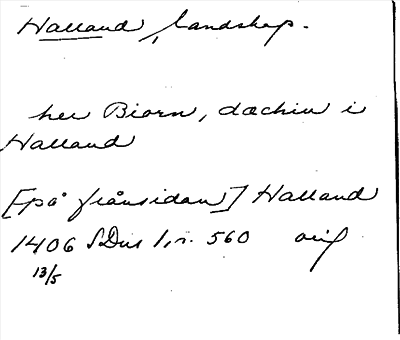 Halland, landskap.
her Biorn, dæchin i
Halland
[på frånsidan] Halland
1406 SDns 1, r. 560 orig
13/5